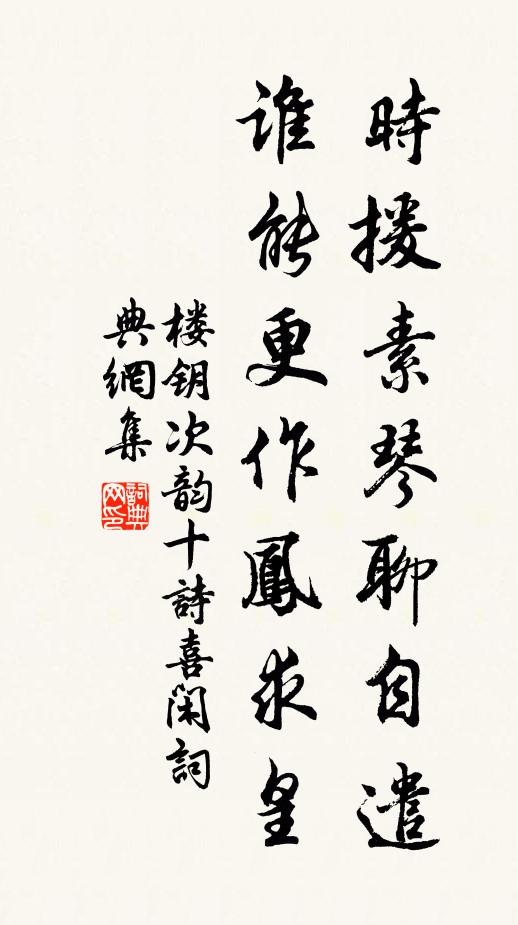 時援素琴聊自遣
誰能更作鳳求皇
楼钥次韵十詩喜閑詞
典網集
詞典网印